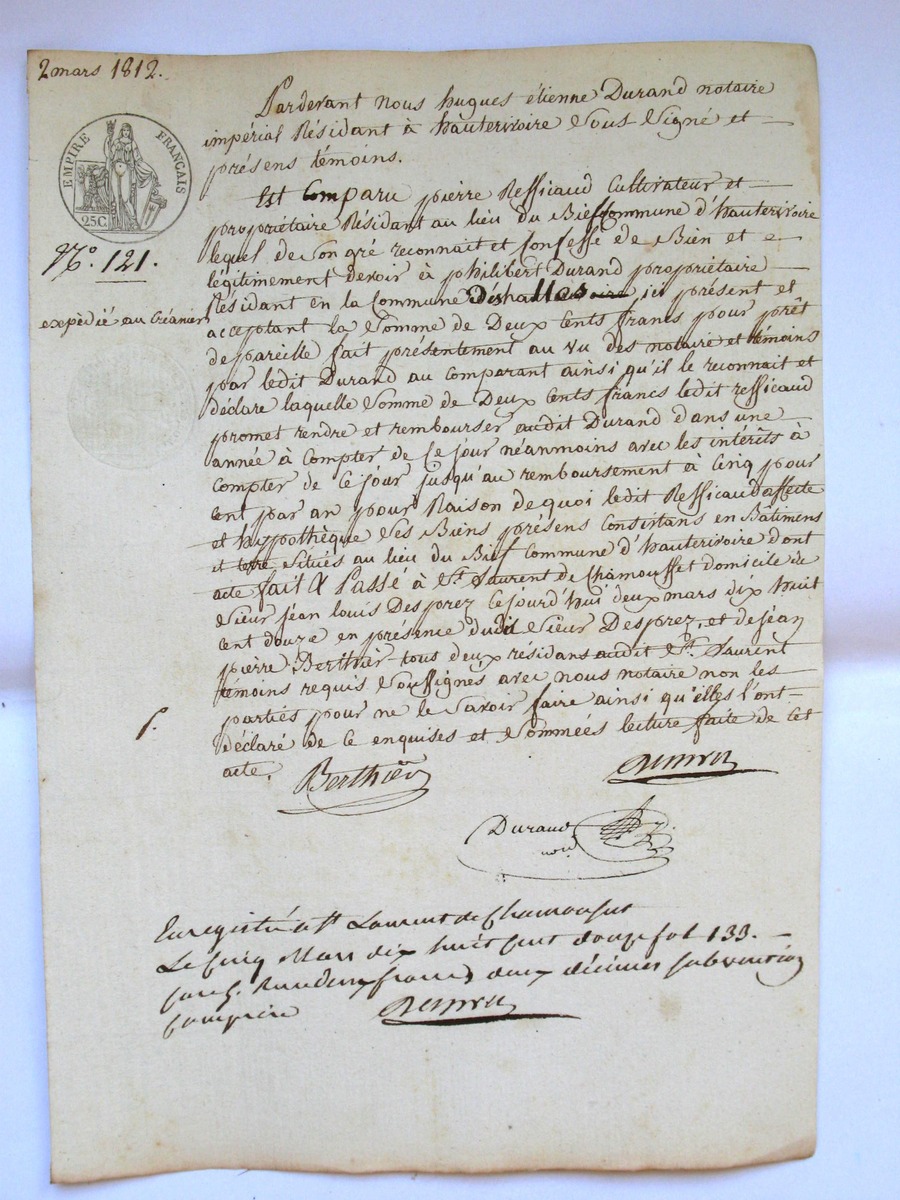 2 mars 1812.
EMPIRE FRANÇAIS
25 C.
N.º 121.
expèdié au Créanier
Pardevant nous hugues étienne Durand notaire
impérial Résidant à hauterivoire Soussigné et
présens témoins.
Est Comparu pierre Ressicaud Cultivateur et
propriétaire Résidant au lieu du Bief Commune d'hauterivoire
lequel de Son gré reconnait et Confesse de Bien et
légitimement devoir à philibert Durand propriétaire
Résidant en la Commune Deshalles ici présent et
acceptant la Somme de Deux Cents francs pour prêt
de pareille fait présentement au vu des notaire et témoins
par ledit Durand au Comparant ainsi qu'il le reconnait et
déclare laquelle Somme de Deux Cents francs ledit ressicaud
promet rendre et rembourser audit Durand dans une
année à Compter de Ce jour néanmoins avec les intérêts à
Compter de Ce jour jusqu'au remboursement à Cinq pour
Cent par an pour Raison de quoi ledit Ressicaud affecte
et hypothèque Ses Biens présens Consistans en Bâtimens
et terre Situés au lieu du Bief Commune d'hauterivoire dont
acte fait & Passé à St. Laurent de Chamousset domicile de
Sieur jéan louis Desprez Cejourd'hui deux mars dix huit
Cent douze en présence dudit Sieur Desprez, et de jéan
pierre Berthier tous deux résidans audit St. Laurent
témoins requis Soussignés avec nous notaire non les
parties pour ne le Savoir faire ainsi qu'elles l'ont
déclaré de Ce enquises et Sommées lecture faite de Cet
acte.
Berthier
Durand
not.
Enregistré a St Laurent de Chamousset
Le Cinq Mars dix huit Cent douze fol 133.
deux décimes subvention
Comprise